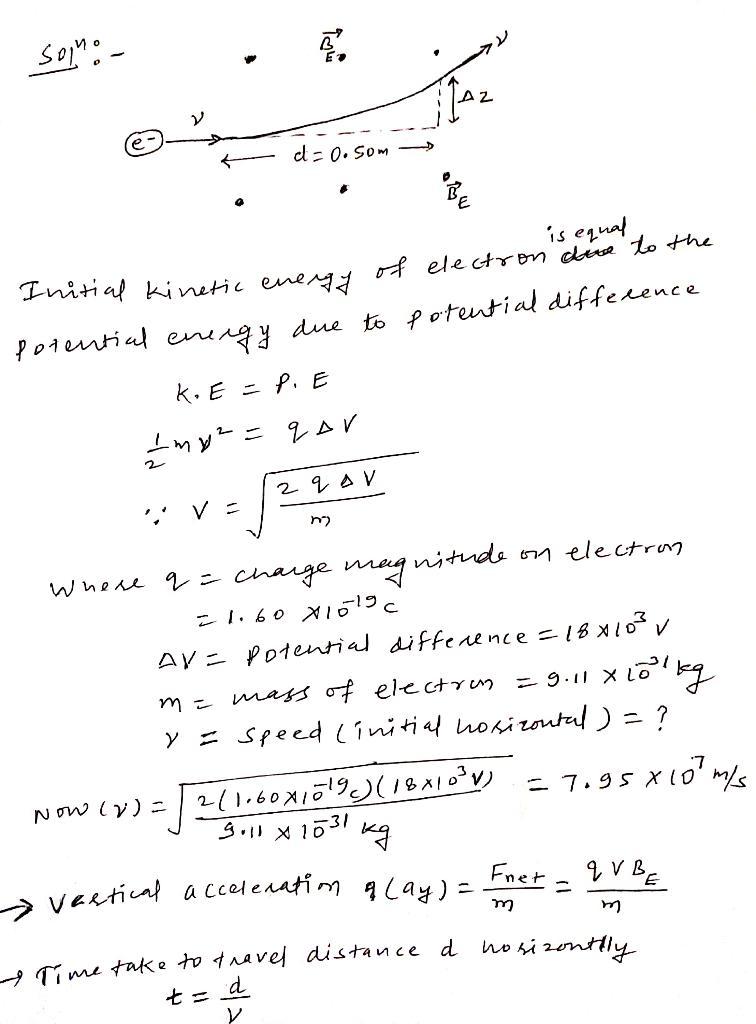 Solⁿ:-
B⃗E
v
Δz
e-
v
d = 0.50m
B⃗E
Initial kinetic energy of electron is equal to the
potential energy due to potential difference
K.E = P.E
1/2 mv² = qΔV
∵ v = √(2qΔV/m)
Where q = charge magnitude on electron
= 1.60 ×10⁻¹⁹c
ΔV = Potential difference = 18×10³ v
m = mass of electron = 9.11 × 10⁻³¹ kg
v = speed (initial horizontal) = ?
Now (v) = √(2(1.60×10⁻¹⁹c)(18×10³V)/9.11 × 10⁻³¹ kg) = 7.95 × 10⁷ m/s
→ Vertical acceleration q (ay) = Fnet/m = qVBE/m
→ Time take to travel distance d horizontlly
t = d/v